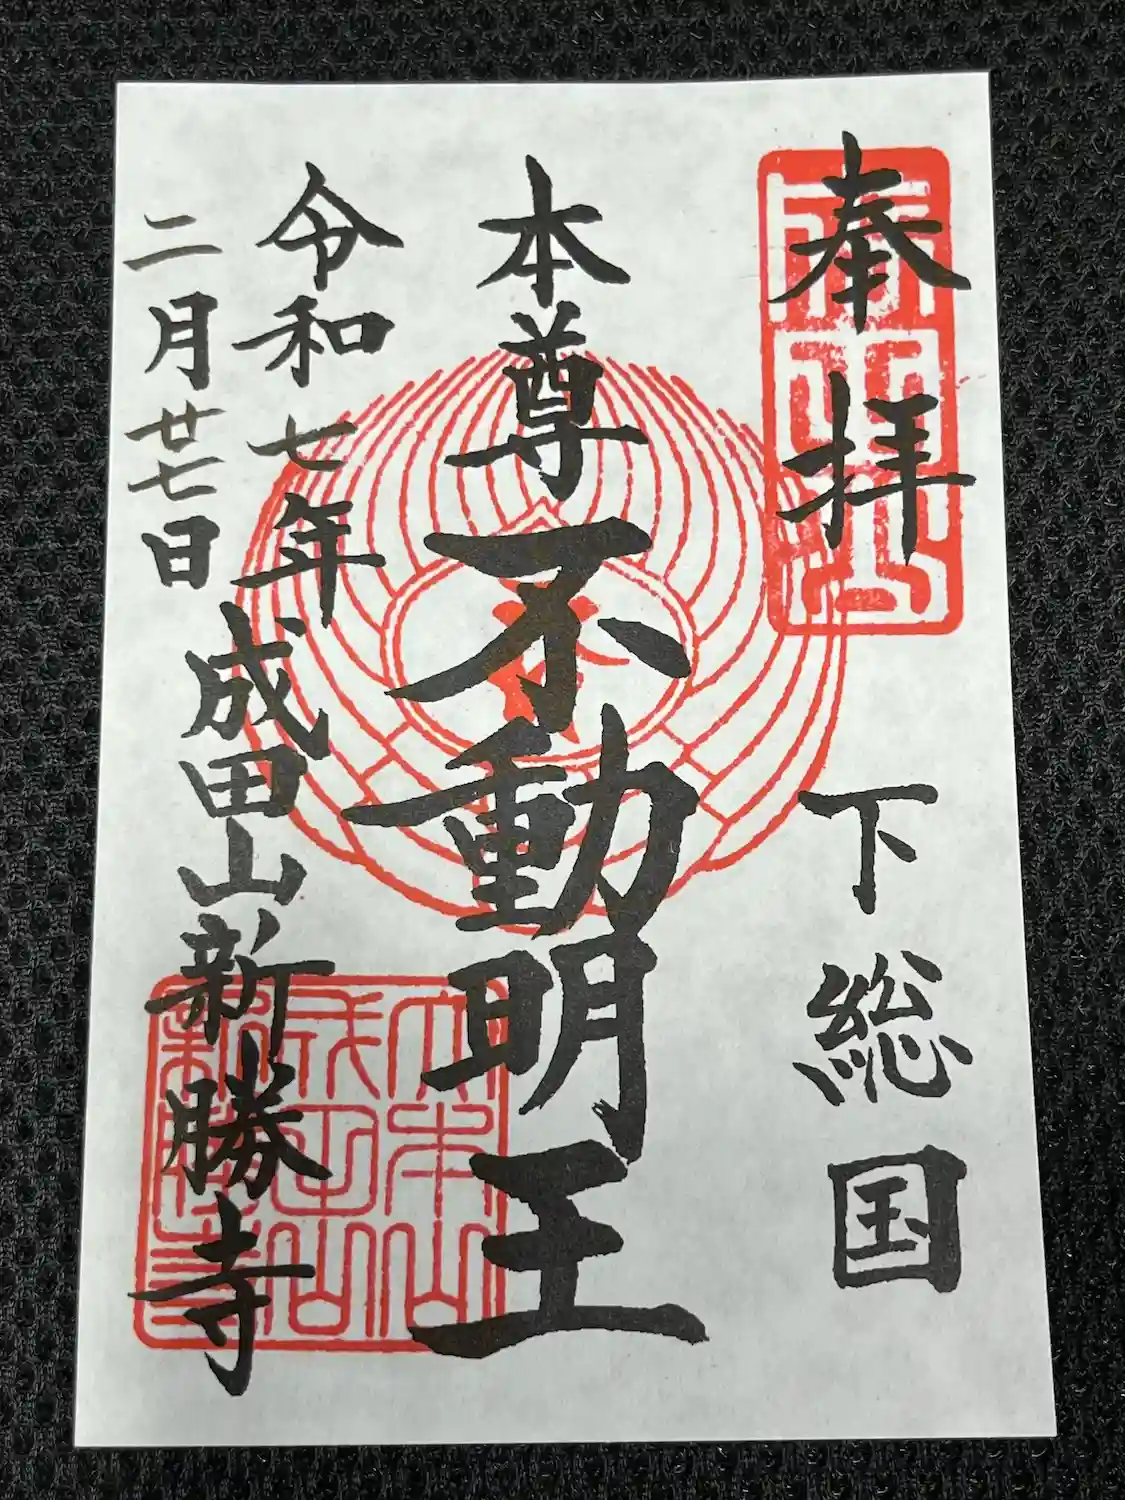 奉拝
下総国
本尊不動明王
令和七年
二月廿七日
成田山新勝寺
大本山
成田山
新勝寺